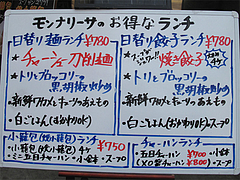 モンナリーサのお得なランチ
日替り麺ランチ ¥780
★チャーシュー刀削麺
★トリとブロッコリーの
黒胡椒炒め
・新鮮ワカメとキューリのあえもの
・白ごはん(おかわりOK)
日替り餃子ランチ ¥780
焼き餃子
★トリとブロッコリーの
黒胡椒炒め
・新鮮ワカメとキューリのあえもの
・白ごはん(おかわりOK)・スープ
小籠包(焼小籠包)ランチ
・小籠包(焼小籠包)4ケ ¥750
・ミニ五目チャーハン・小鉢・スープ
チャーハンランチ
・五目チャーハン ¥700 ・小鉢
(XO醤チャーハン ¥800)・スープ